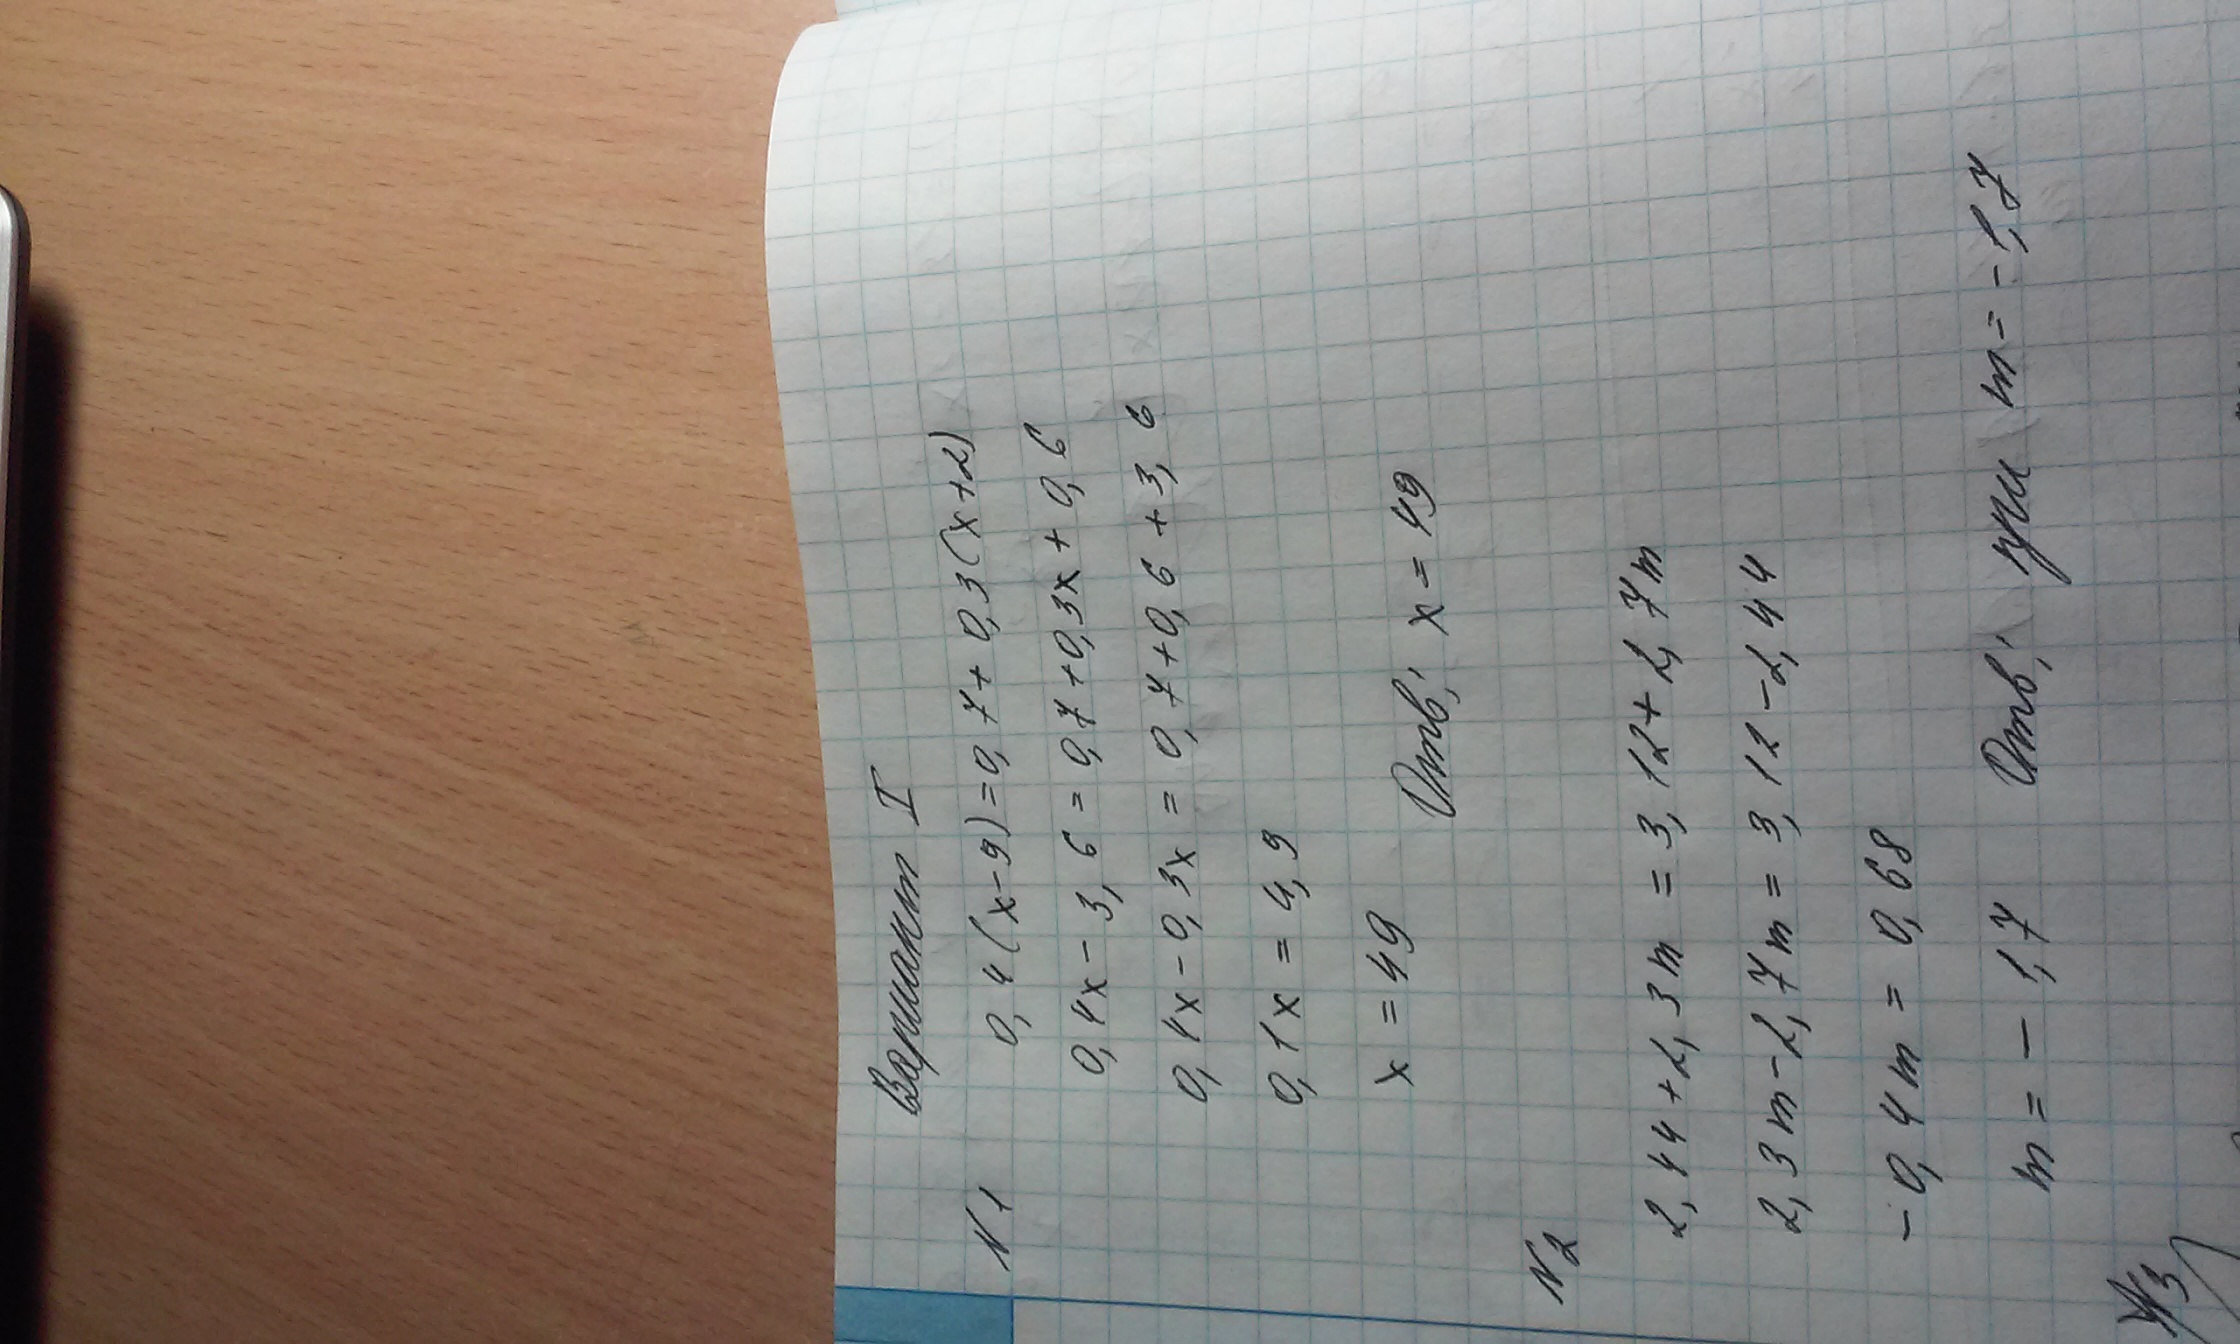 Вариант I
N1 0,4(x-9)=0,7+0,3(x+2)
0,4x-3,6=0,7+0,3x+0,6
0,4x-0,3x=0,7+0,6+3,6
0,1x=4,9
x=49 Отв; x=49
N2
2,44+2,3m=3,12+2,7m
2,3m-2,7m=3,12-2,44
-0,4m=0,68
m=-1,7 Отв; при m=-1,7
N3